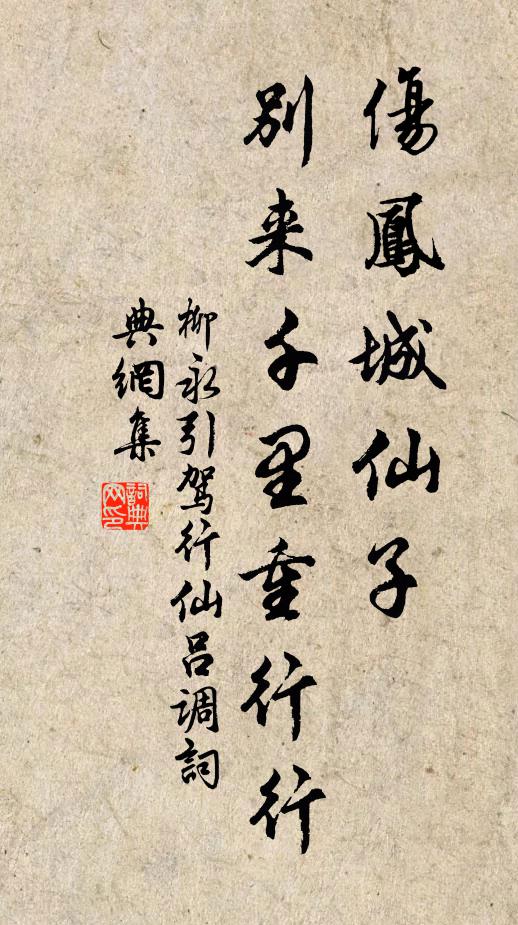 傷鳳城仙子
別来千里重行行
柳永引駕行仙呂调詞
典網集
詞典
网印